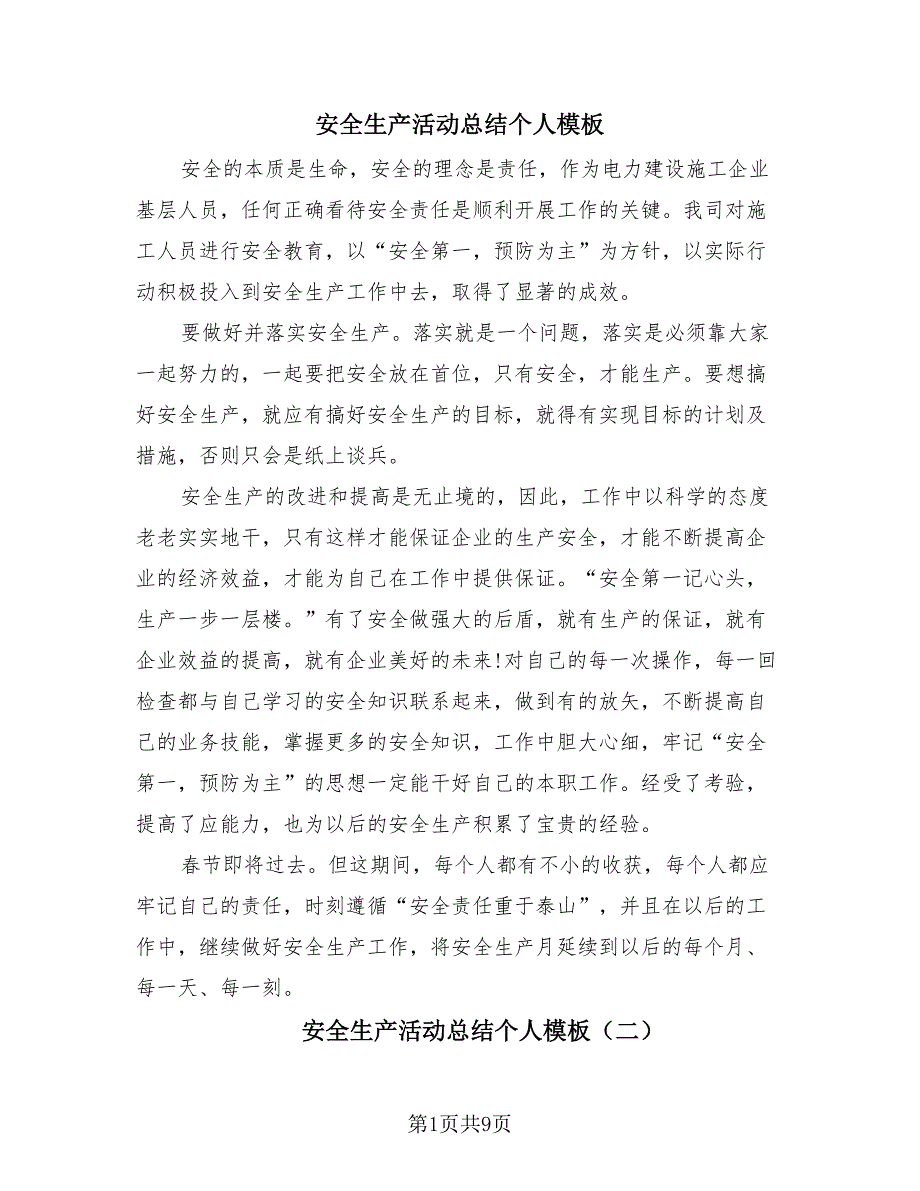 安全生产活动总结个人模板
安全的本质是生命，安全的理念是责任，作为电力建设施工企业
基层人员，任何正确看待安全责任是顺利开展工作的关键。我司对施
工人员进行安全教育，以“安全第一，预防为主”为方针，以实际行
动积极投入到安全生产工作中去，取得了显著的成效。
要做好并落实安全生产。落实就是一个问题，落实是必须靠大家
一起努力的，一起要把安全放在首位，只有安全，才能生产。要想搞
好安全生产，就应有搞好安全生产的目标，就得有实现目标的计划及
措施，否则只会是纸上谈兵。
安全生产的改进和提高是无止境的，因此，工作中以科学的态度
老老实实地干，只有这样才能保证企业的生产安全，才能不断提高企
业的经济效益，才能为自己在工作中提供保证。“安全第一记心头，
生产一步一层楼。”有了安全做强大的后盾，就有生产的保证，就有
企业效益的提高，就有企业美好的未来!对自己的每一次操作，每一回
检查都与自己学习的安全知识联系起来，做到有的放矢，不断提高自
己的业务技能，掌握更多的安全知识，工作中胆大心细，牢记“安全
第一，预防为主”的思想一定能干好自己的本职工作。经受了考验，
提高了应能力，也为以后的安全生产积累了宝贵的经验。
春节即将过去。但这期间，每个人都有不小的收获，每个人都应
牢记自己的责任，时刻遵循“安全责任重于泰山”，并且在以后的工
作中，继续做好安全生产工作，将安全生产月延续到以后的每个月、
每一天、每一刻。
安全生产活动总结个人模板（二）
第1页共9页